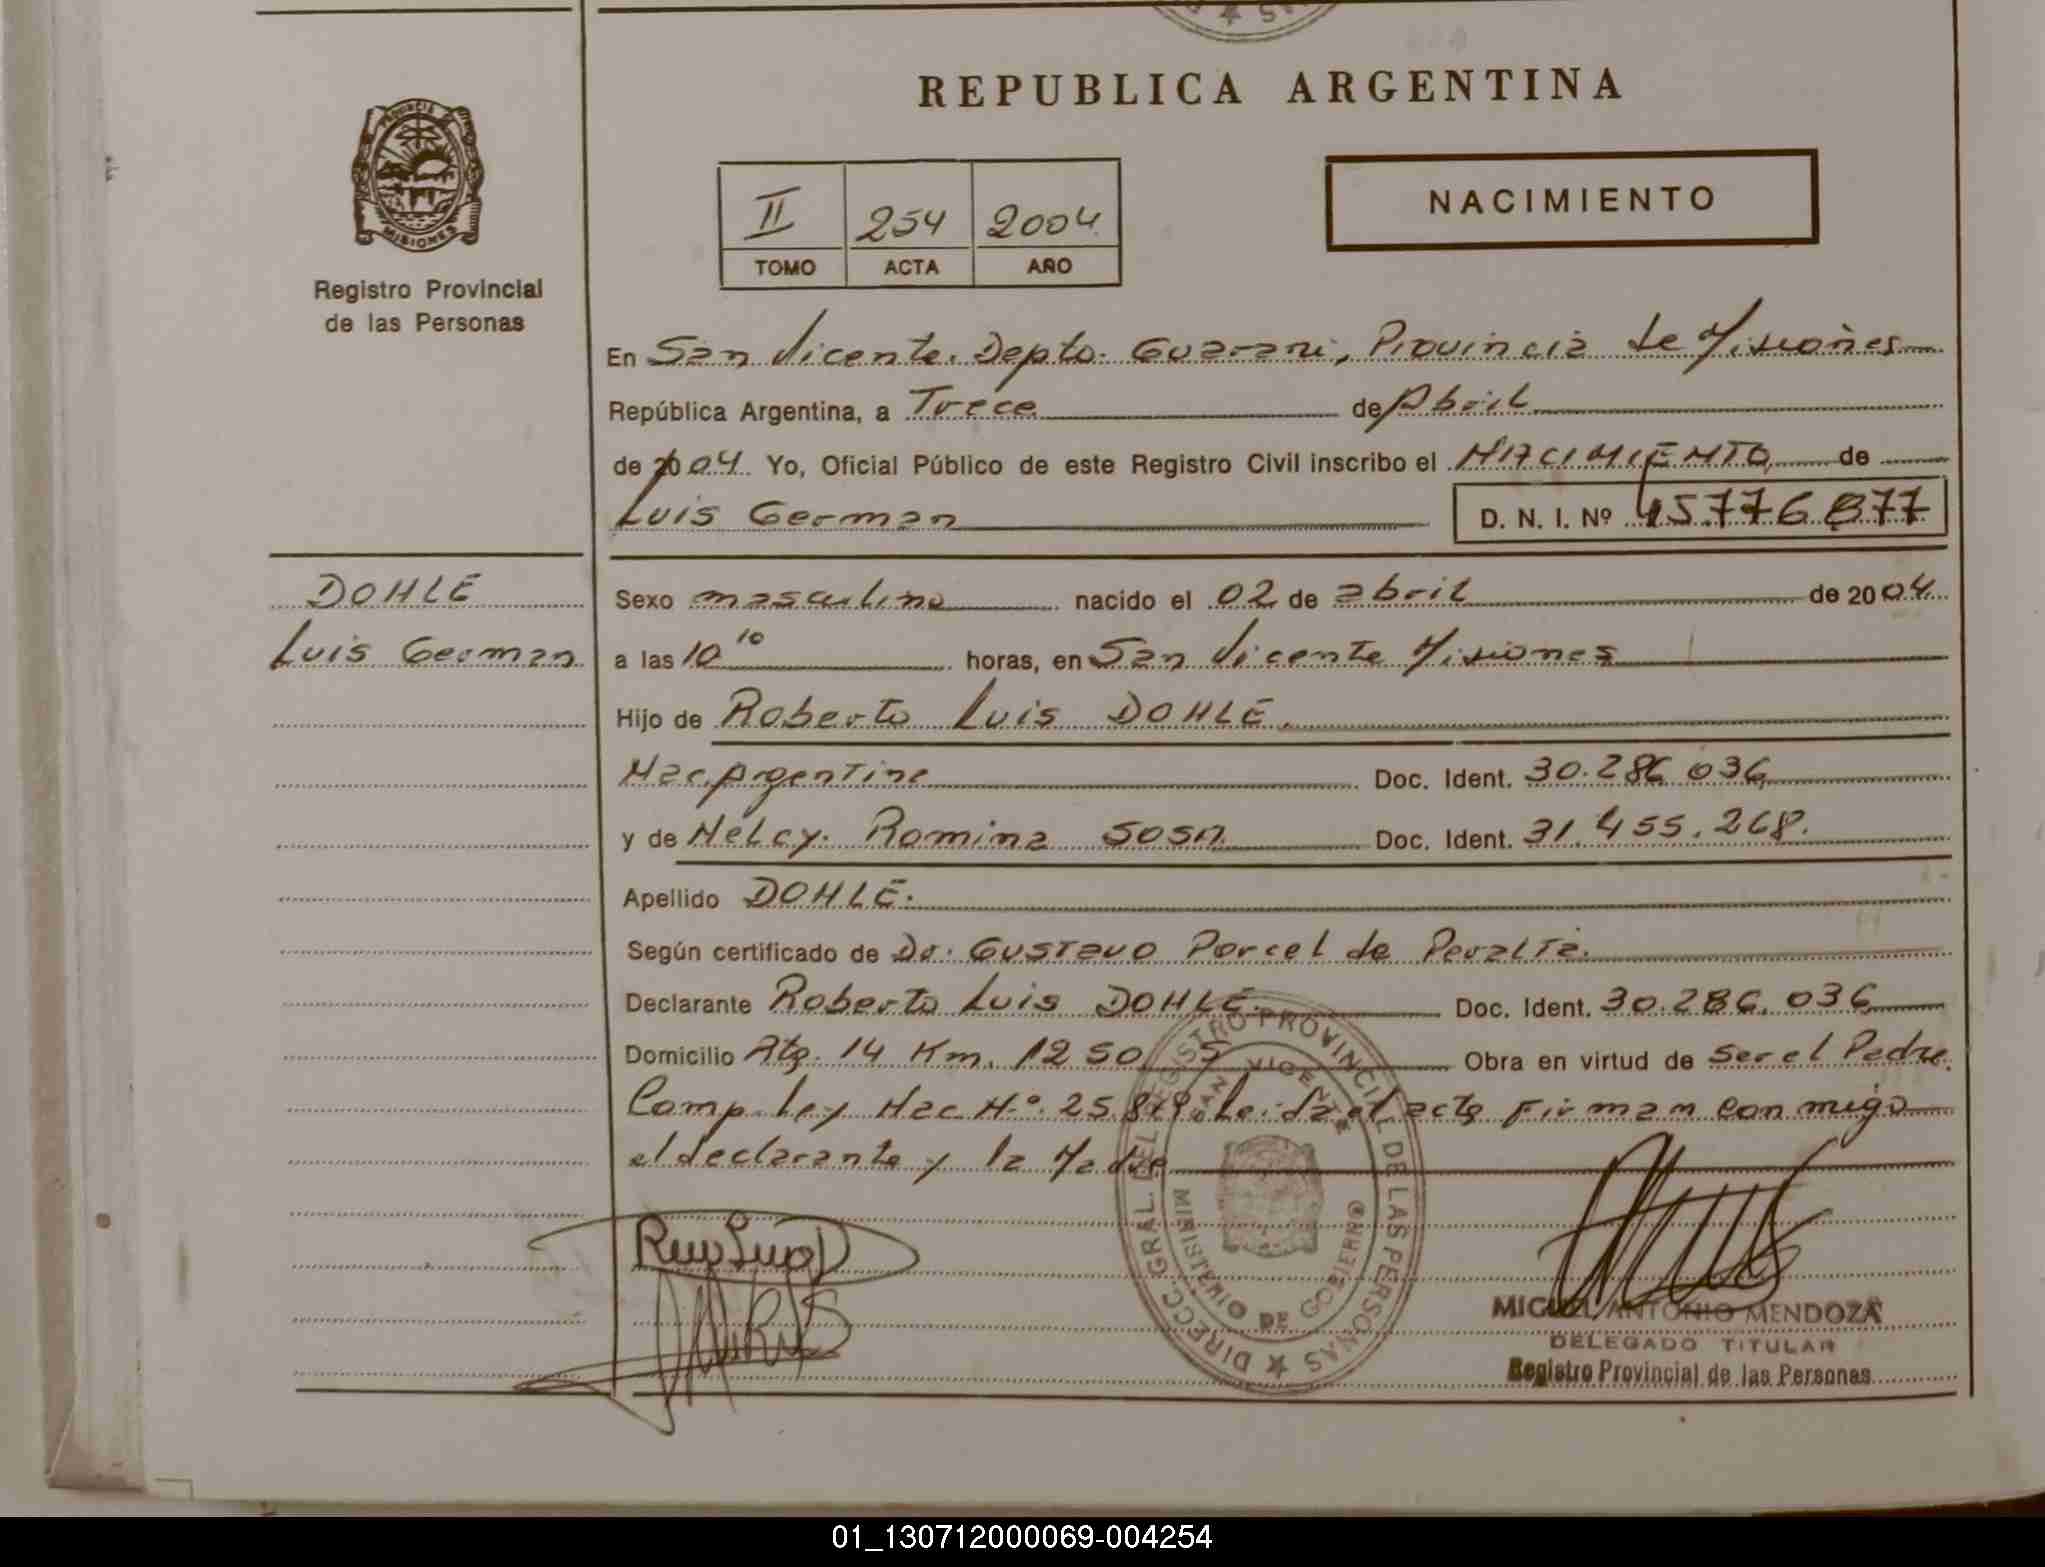 REPUBLICA ARGENTINA
PROVINCIA DE MISIONES
Registro Provincial
de las Personas
II 254 2004
TOMO ACTA AÑO
NACIMIENTO
En San Vicente. Depto. Guarani, Provincia de Misiones
República Argentina, a Trece de Abril
de 2004. Yo, Oficial Público de este Registro Civil inscribo el NACIMIENTO de
Luis German D. N. I. Nº 45776877
DOHLE
Luis German
Sexo masculino nacido el 02 de abril de 2004.
a las 10 10 horas, en San Vicente Misiones
Hijo de Roberto Luis DOHLE.
Nac. Argentina Doc. Ident. 30.286.036
y de Nelcy. Romina SOSA Doc. Ident. 31.455.268.
Apellido DOHLE.
Según certificado de Dr. Gustavo Porcel de Peralta.
Declarante Roberto Luis DOHLE. Doc. Ident. 30.286.036
Domicilio Rta. 14 Km. 1250 Obra en virtud de ser el Padre.
Comp. Ley Nac. N.º 25.819 Leida el acta firman con migo
el declarante y la Madre
DIRECC. GRAL. DEL REGISTRO PROVINCIAL DE LAS PERSONAS
SAN VICENTE
MINISTERIO DE GOBIERNO
MIGUEL ANTONIO MENDOZA
DELEGADO TITULAR
Registro Provincial de las Personas
01_130712000069-004254